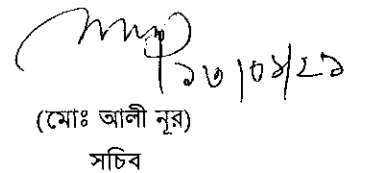 ১৩/০১/২১
(মোঃ আলী নূর)
সচিব